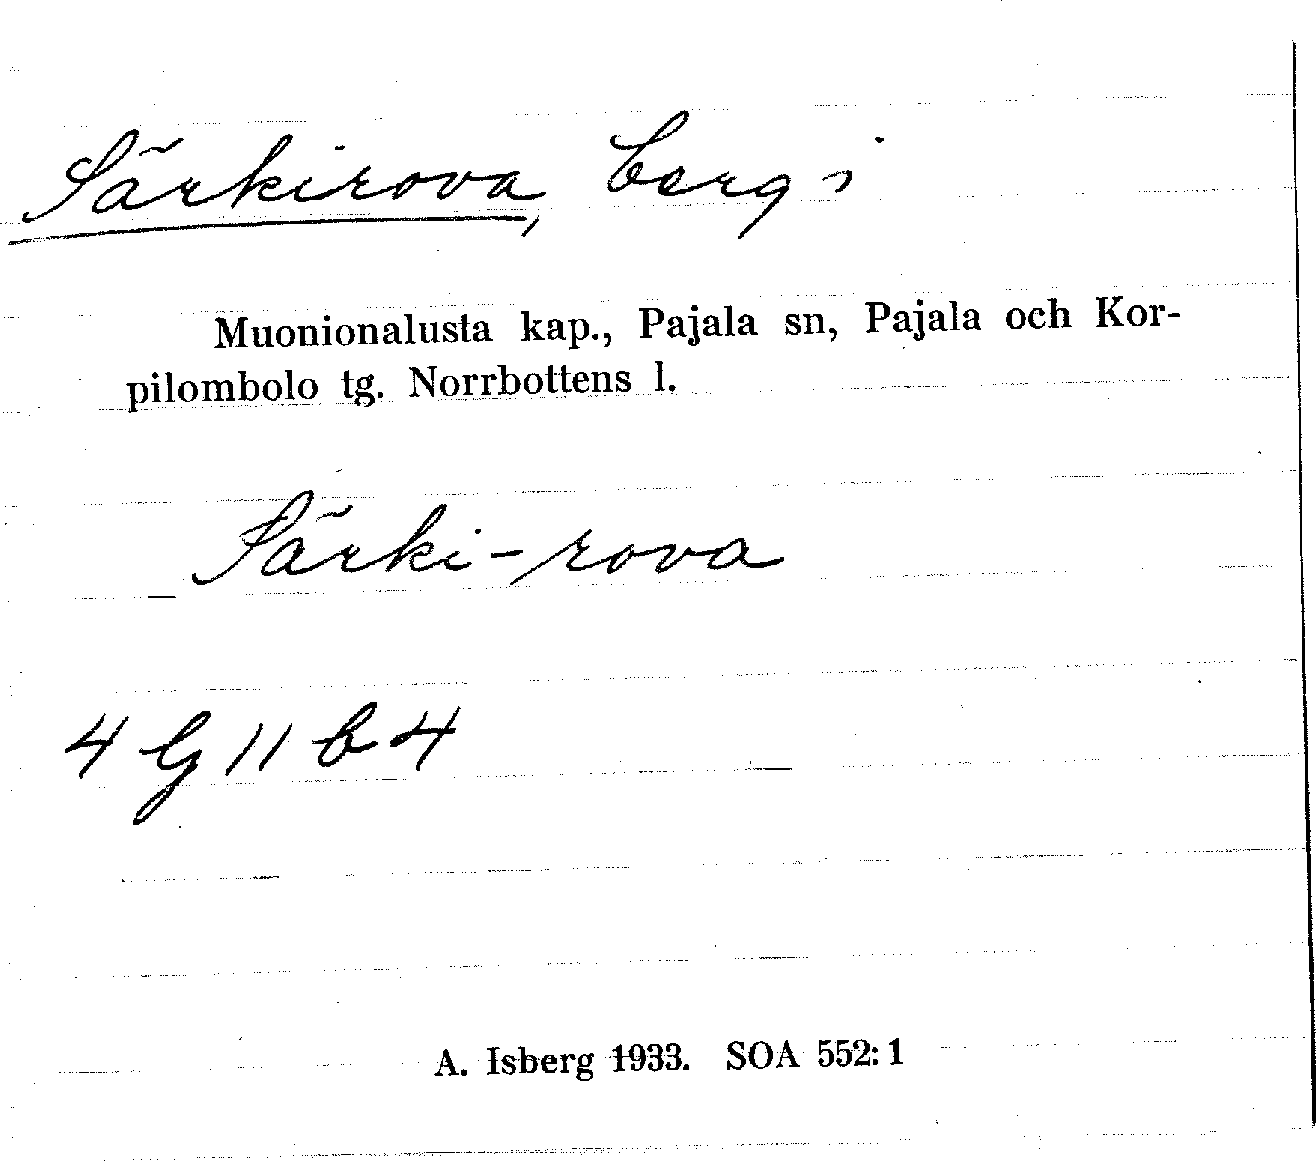 Särkirova, berg i
Muonionalusta kap., Pajala sn, Pajala och Kor-
pilombolo tg. Norrbottens l.
Särki-rova
4 G 11 b 4
A. Isberg 1933. SOA 552:1